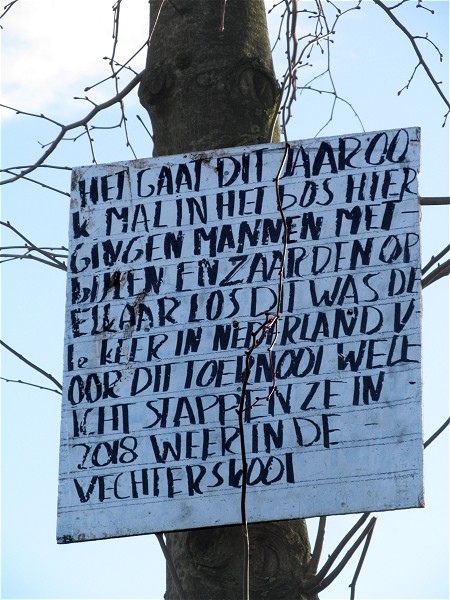 HET GAAT DIT JAAR OO
K MAL IN HET BOS HIER
GINGEN MANNEN MET
BIJLEN EN ZAARDEN OP
ELKAAR LOS DIT WAS DE
1e KEER IN NEDERLAND V
OOR DIT TOERNOOI WELL
ICHT STAPPEN ZE IN
2018 WEER IN DE
VECHTERSKOOI